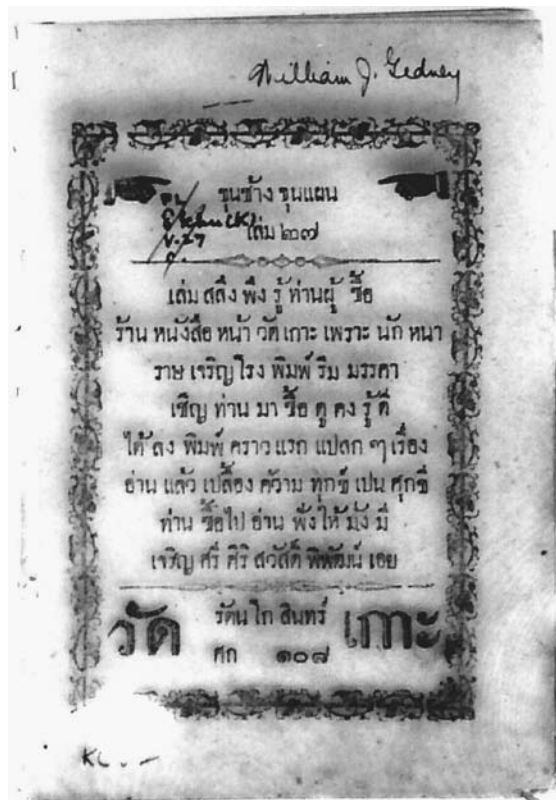 William J. Gedney
ขุนช้าง ขุนแผน
เล่ม ๒๗
V.27
เล่ม สลึง พึง รู้ ท่านผู้ ซื้อ
ร้าน หนังสือ หน้า วัดเกาะ เพราะ นัก หนา
ราษ เจริญ โรง พิมพ์ ริม มรรคา
เชิญ ท่าน มา ซื้อ ดู คง รู้ ดี
ได้ ลง พิมพ์ คราว แรก แปลก ๆ เรื่อง
อ่าน แล้ว เปลื้อง ความ ทุกข์ เปน ศุกขี
ท่าน ซื้อไป อ่าน ฟังให้ มั่ง มี
เจริญ ศรี ศิริ สวัสดิ์ พิพัฒน์ เอย
วัด รัตน โก สินทร์ เกาะ
ศก ๑๐๘